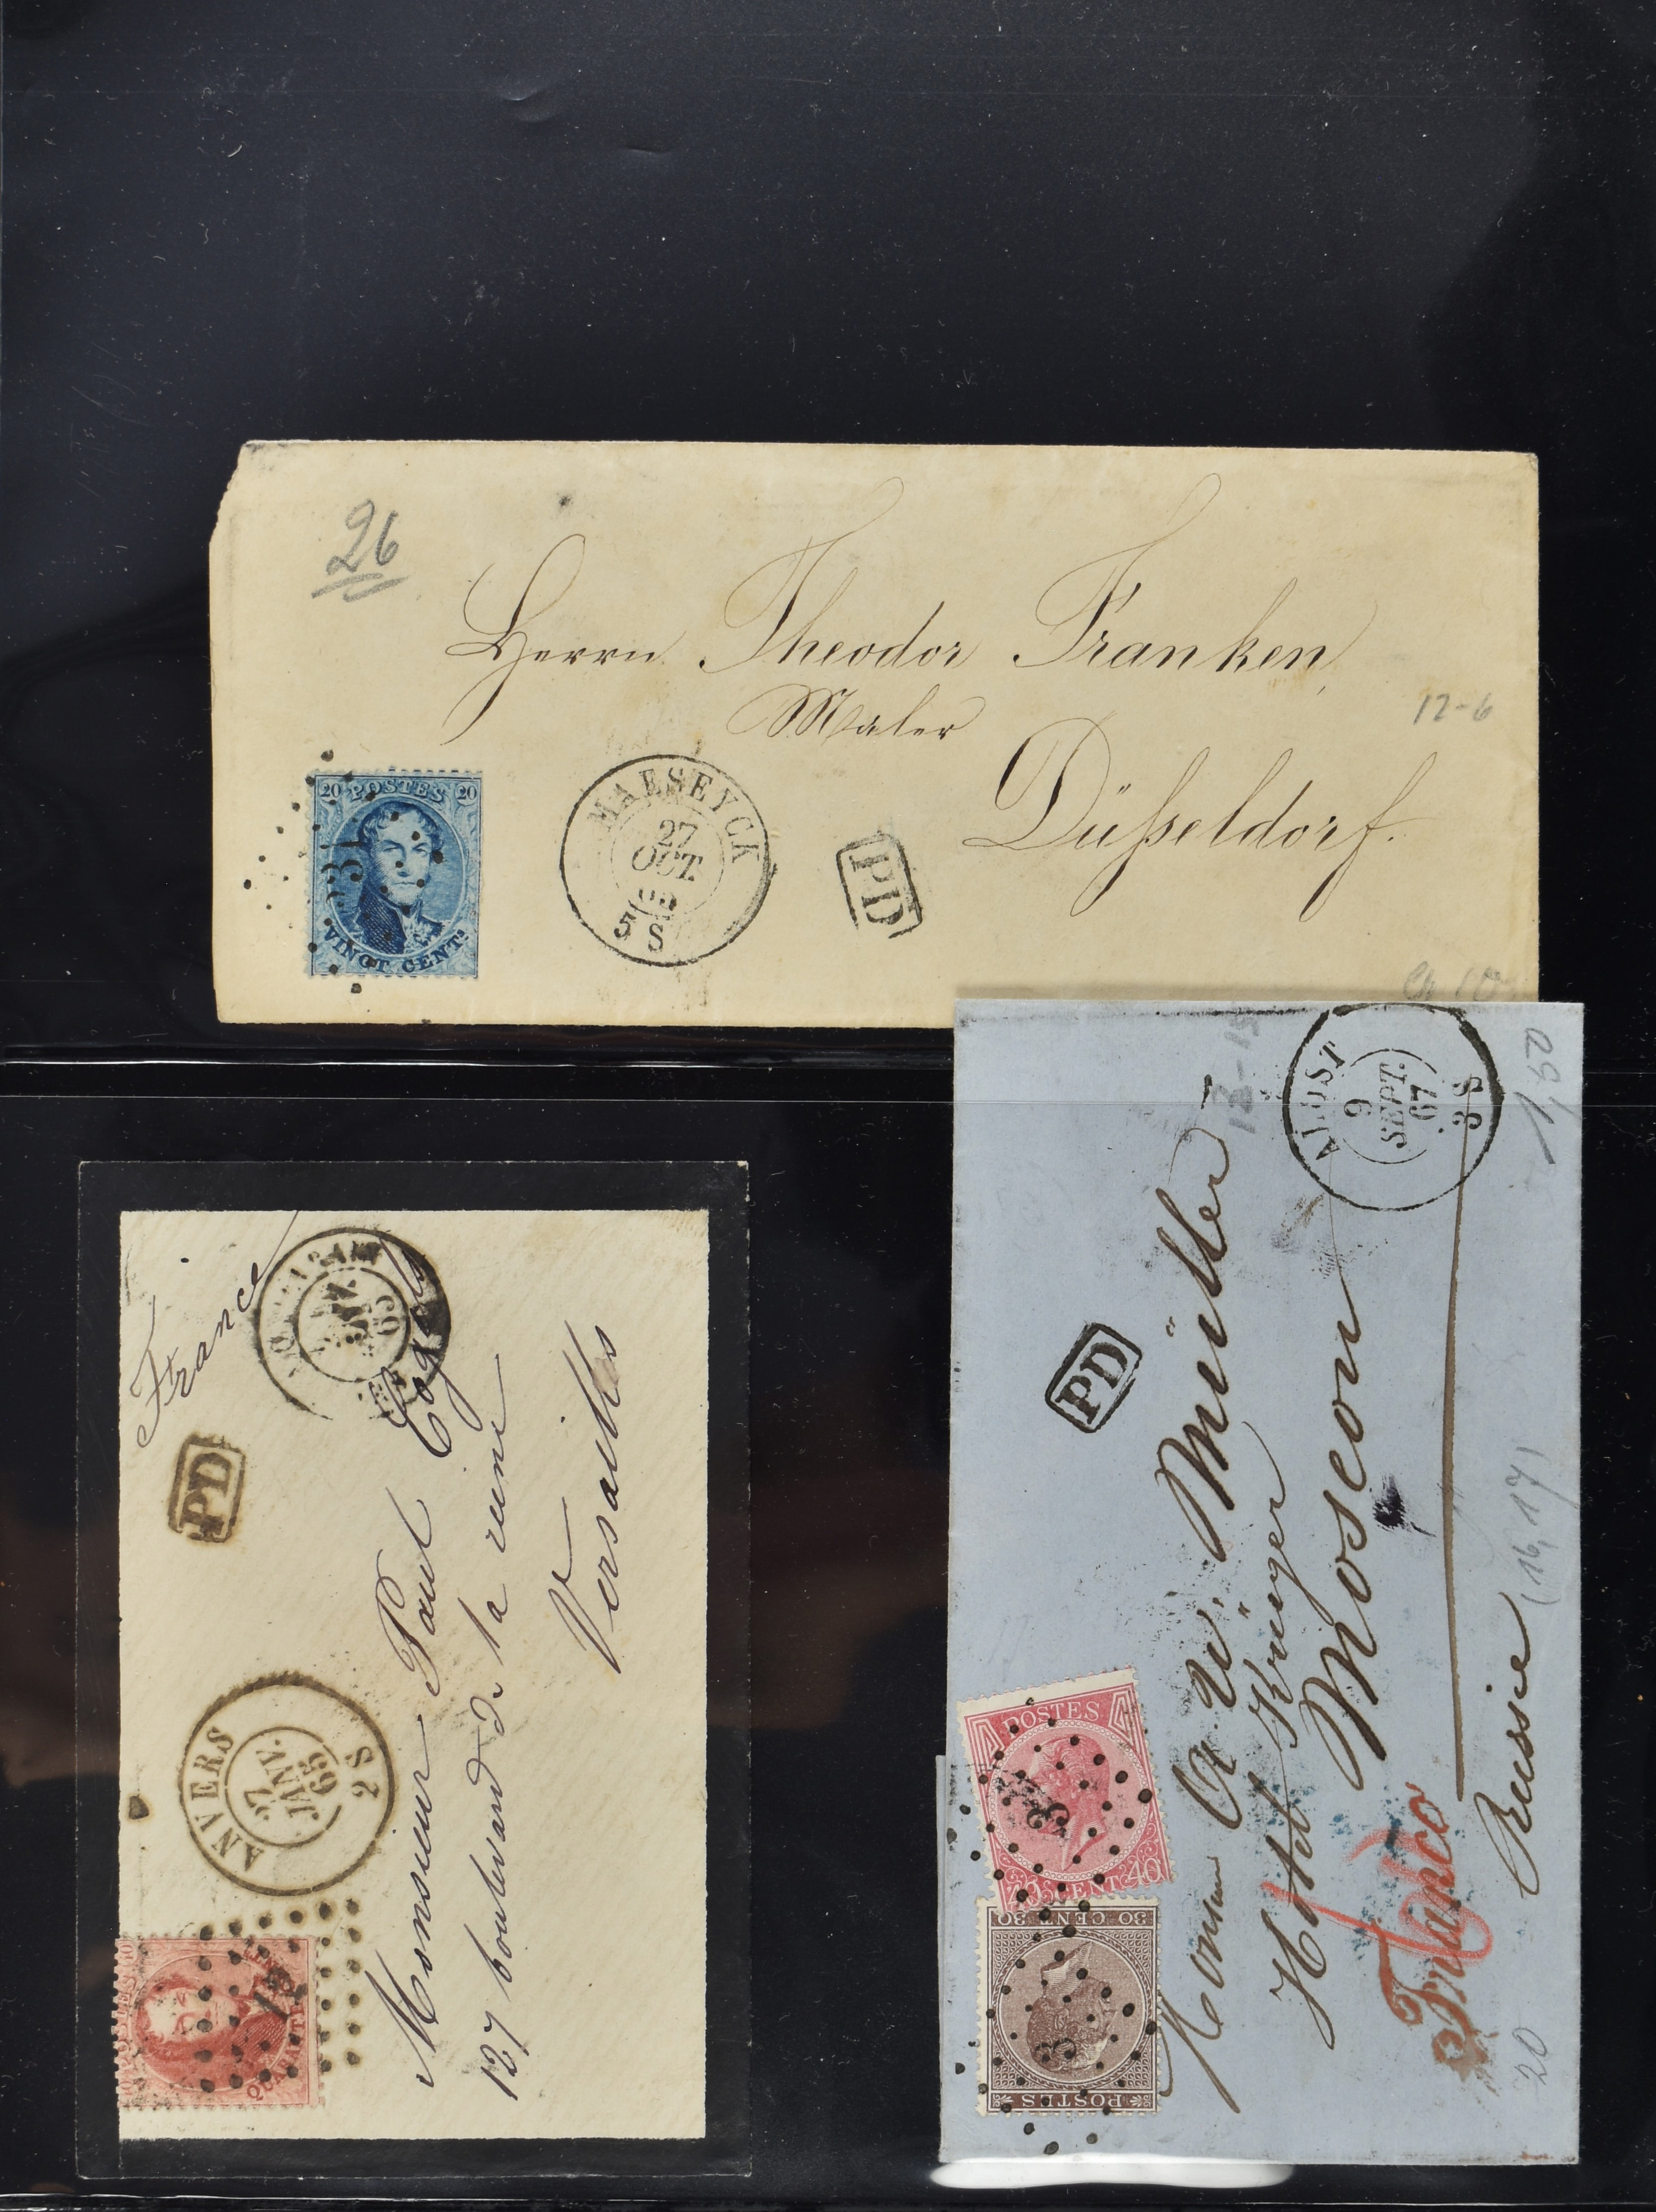 26
Herrn Theodor Franken
Maler
Düsseldorf.
12-6
20 POSTES 20
VINGT CENTS
MAESEYCK
27
OCT
5 S
PD
France
PD
65
ANVERS
27
JANV.
65
2 S
Monsieur Paul
127 boulevard d. la reine
Versailles
12-15
1,50
ALOST
9
SEPT.
67
3 S
PD
POSTES
40 CENT 40
3
30 CENT 30
POSTES
3
A W. Müller
Hôtel Krüger
Moscou
Russie
Franco
(16, 17)
20